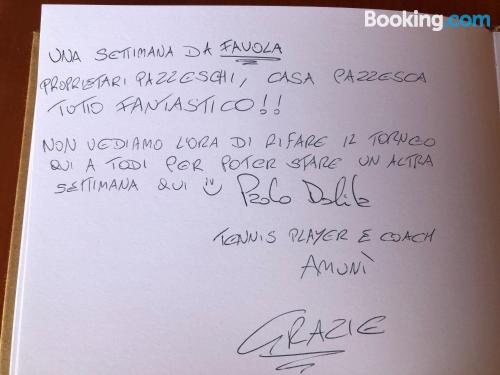 Booking.com
UNA SETTIMANA DA FAVOLA
PROPRIETARI PAZZESCHI, CASA PAZZESCA
TUTTO FANTASTICO!!
NON VEDIAMO L'ORA DI RIFARE IL TORNEO
QUI A TODI PER POTER STARE UN ALTRA
SETTIMANA QUI Paolo
TENNIS PLAYER E COACH
AMUNÌ
GRAZIE